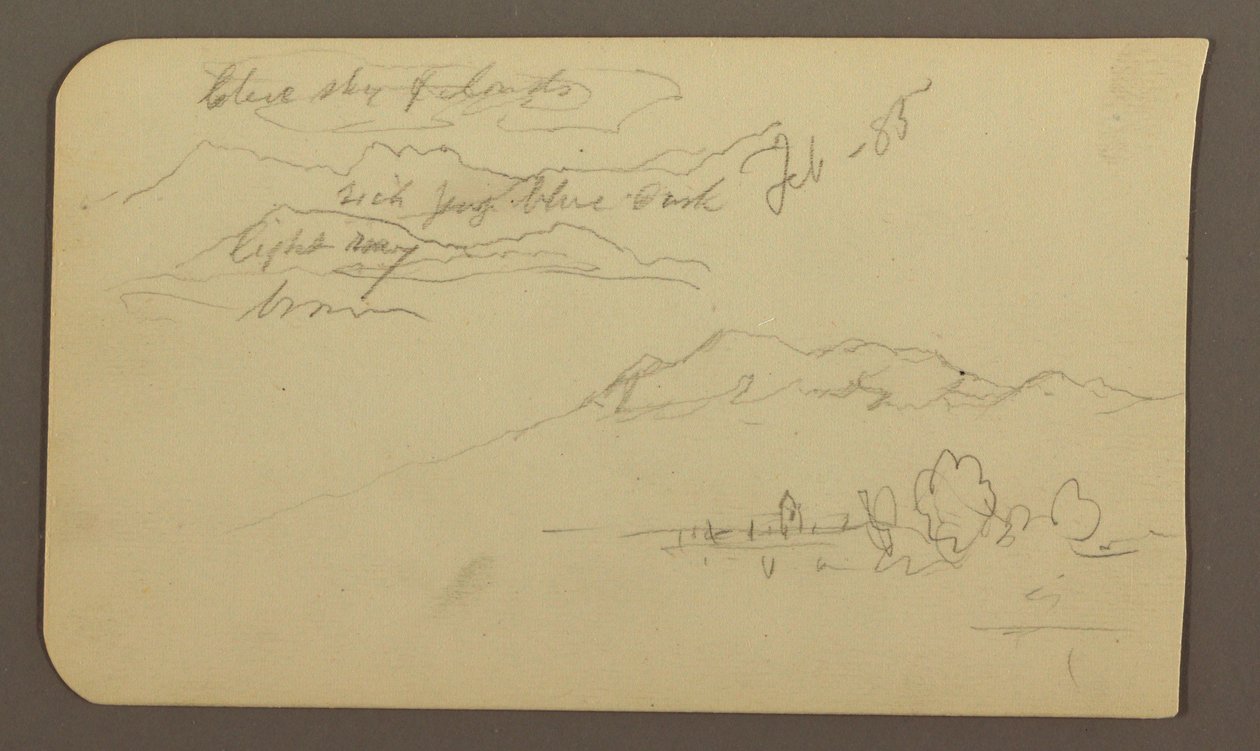 blue sky & clouds
Feb - 85
rich blue dark
light
brown